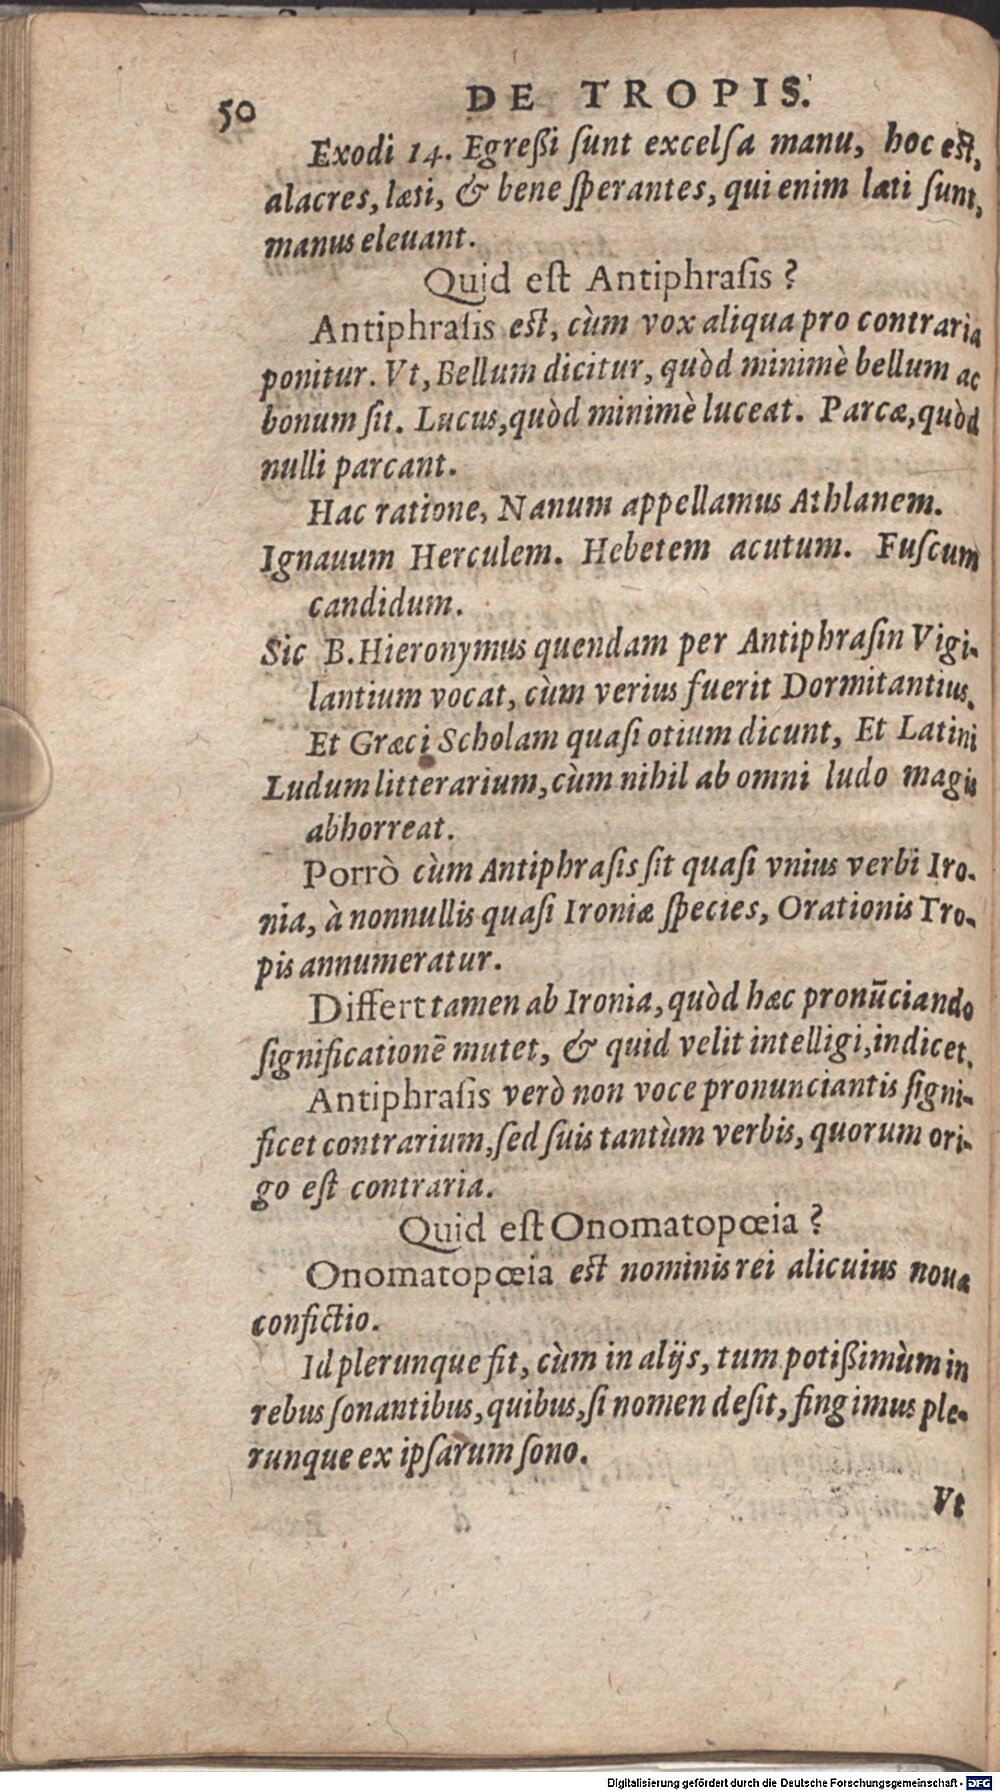 50 DE TROPIS.
Exodi 14. Egreßi ſunt excelſa manu, hoc eſt,
alacres, læti, & bene ſperantes, qui enim læti ſunt,
manus eleuant.
Quid eſt Antiphraſis ?
Antiphraſis eſt, cùm vox aliqua pro contraria
ponitur. Vt, Bellum dicitur, quòd minimè bellum ac
bonum ſit. Lucus, quòd minimè luceat. Parcæ, quòd
nulli parcant.
Hac ratione, Nanum appellamus Athlanem.
Ignauum Herculem. Hebetem acutum. Fuſcum
candidum.
Sic B. Hieronymus quendam per Antiphraſin Vigi-
lantium vocat, cùm verius fuerit Dormitantius.
Et Græci Scholam quaſi otium dicunt, Et Latini
Ludum litterarium, cùm nihil ab omni ludo magis
abhorreat.
Porrò cùm Antiphraſis ſit quaſi vnius verbi Iro-
nia, à nonnullis quaſi Ironiæ ſpecies, Orationis Tro-
pis annumeratur.
Differt tamen ab Ironia, quòd hæc pronūciando
ſignificationē mutet, & quid velit intelligi, indicet.
Antiphraſis verò non voce pronunciantis ſigni-
ficet contrarium, ſed ſuis tantùm verbis, quorum ori-
go eſt contraria.
Quid eſt Onomatopœia ?
Onomatopœia eſt nominis rei alicuius noua
confictio.
Id plerunque fit, cùm in alijs, tum potißimùm in
rebus ſonantibus, quibus, ſi nomen deſit, fingimus ple-
runque ex ipſarum ſono.
Vt
Digitalisierung gefördert durch die Deutsche Forschungsgemeinschaft - DFG